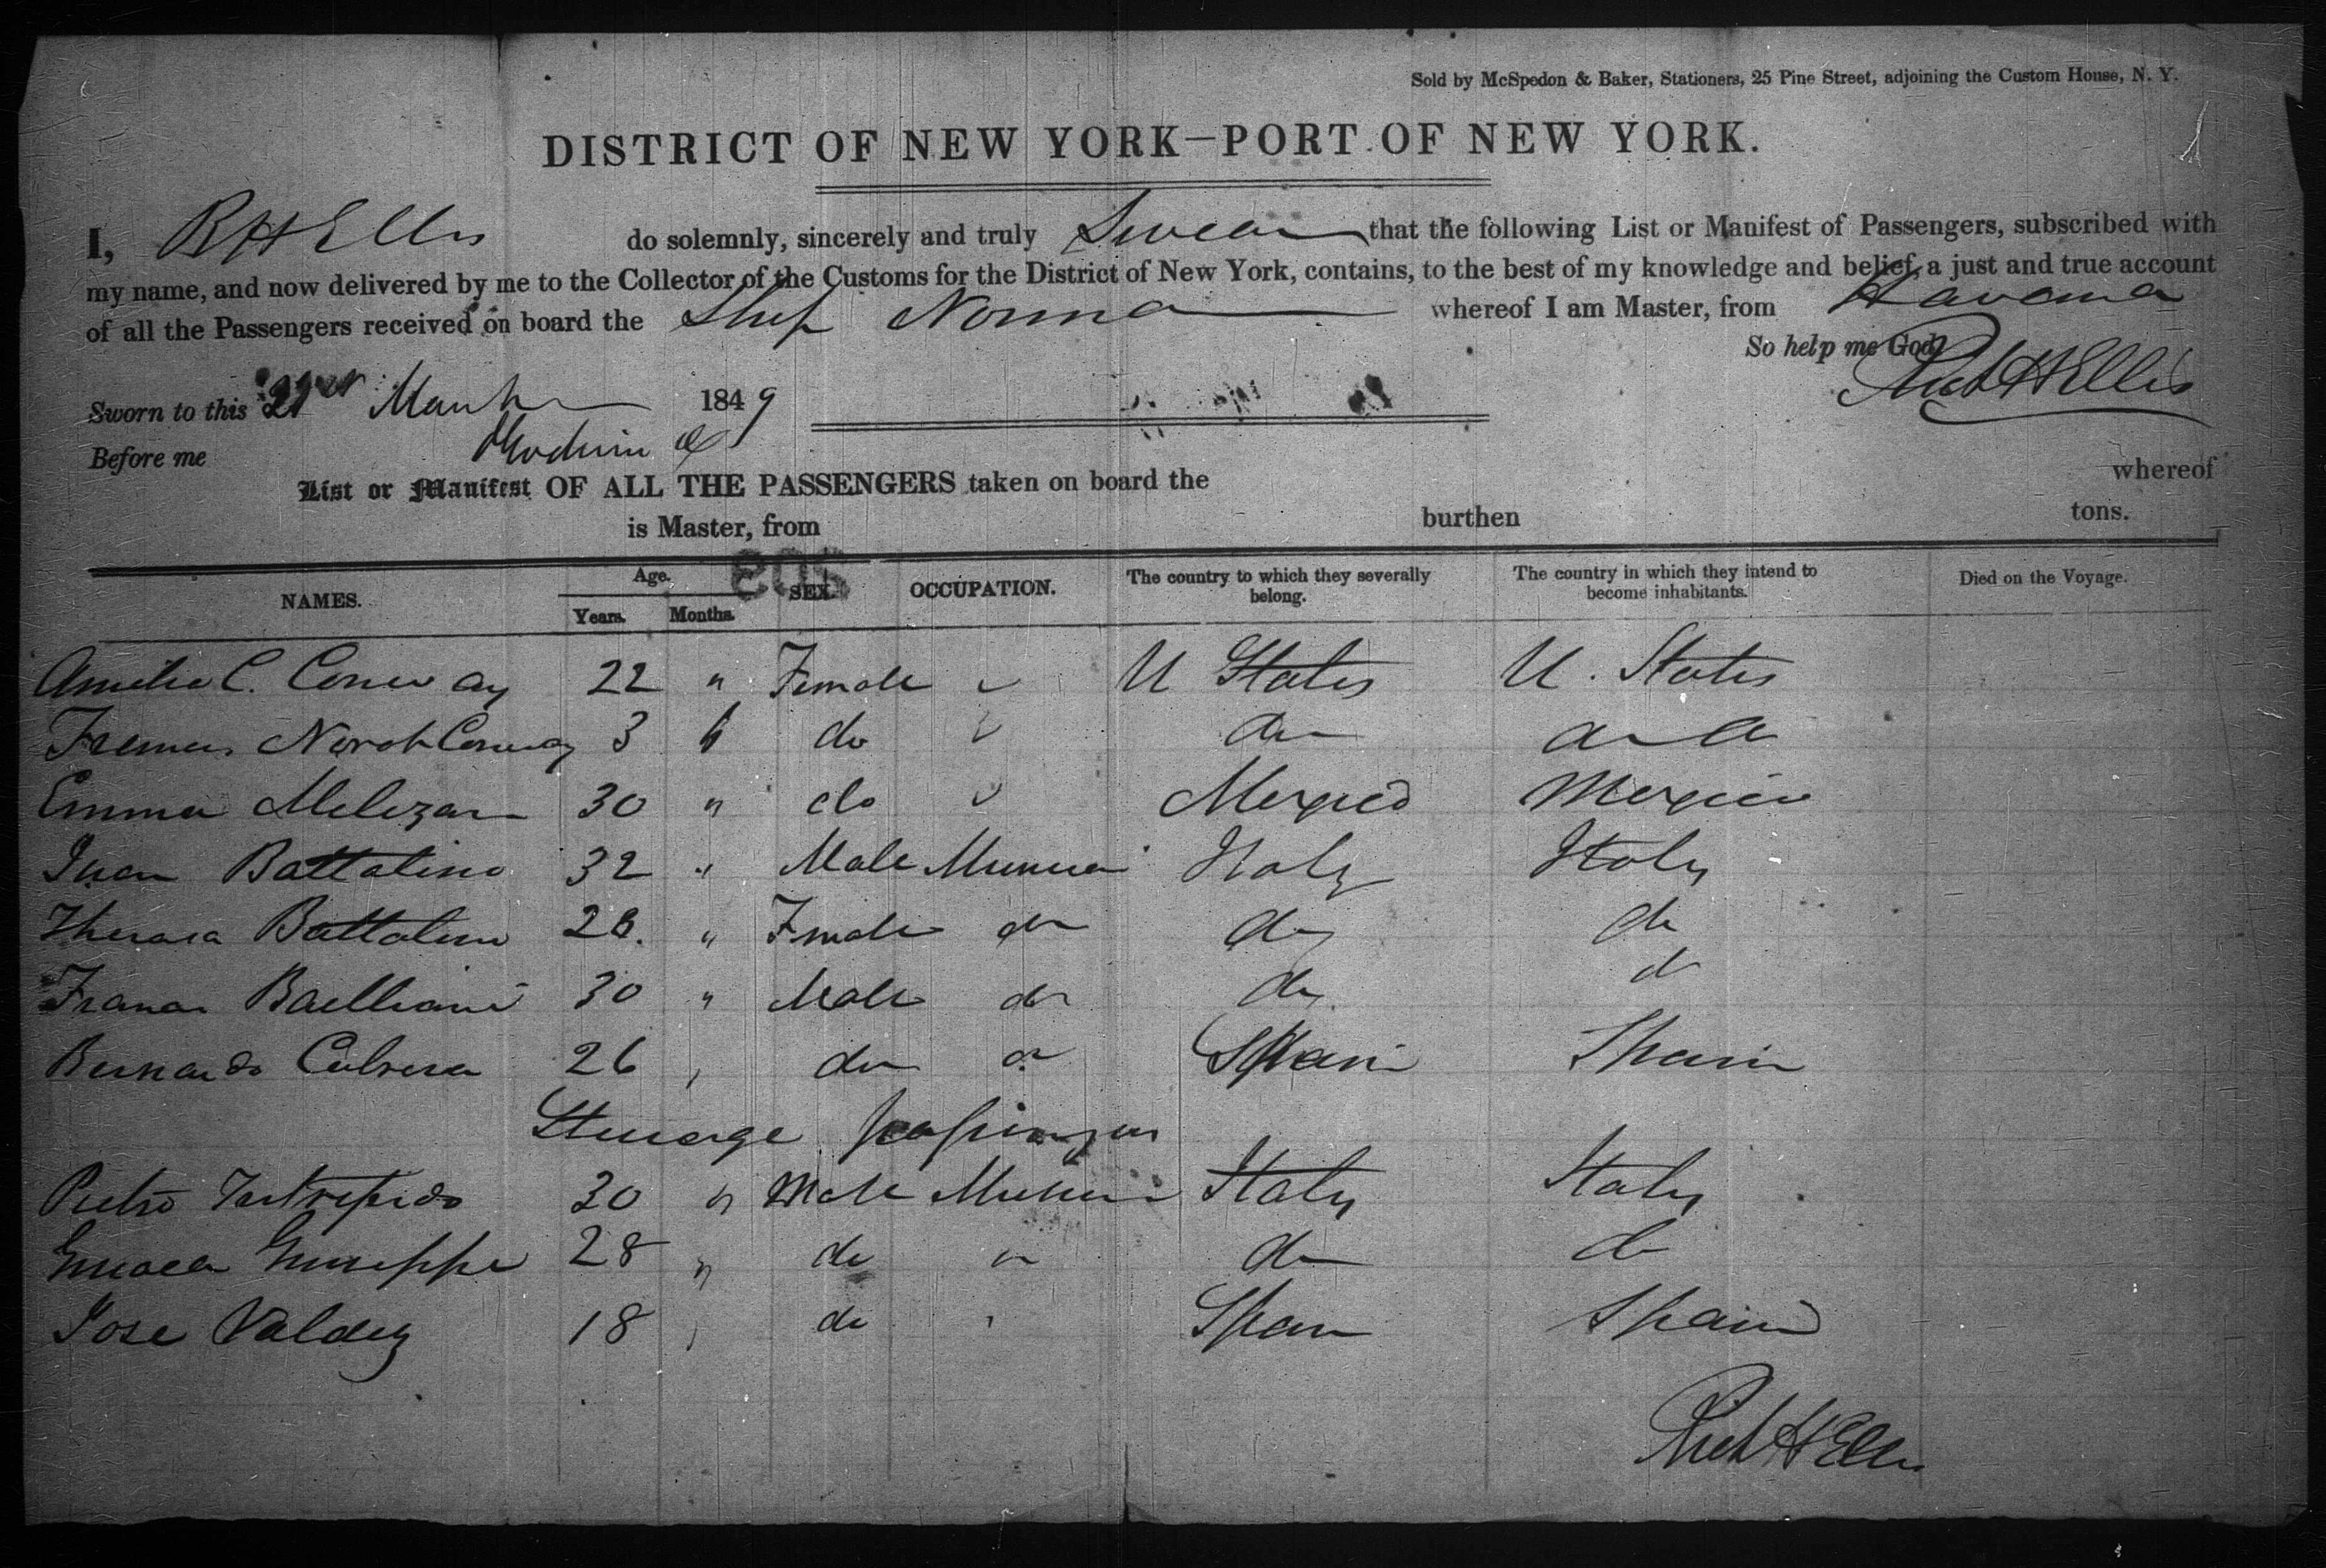 Sold by McSpedon & Baker, Stationers, 25 Pine Street, adjoining the Custom House, N. Y.
DISTRICT OF NEW YORK—PORT OF NEW YORK.
I, R H Ellis do solemnly, sincerely and truly Swear that the following List or Manifest of Passengers, subscribed with
my name, and now delivered by me to the Collector of the Customs for the District of New York, contains, to the best of my knowledge and belief, a just and true account
of all the Passengers received on board the Ship Norma whereof I am Master, from Havana
So help me God
Rich H Ellis
Sworn to this 21st March 1849
Before me
List or Manifest OF ALL THE PASSENGERS taken on board the whereof
is Master, from burthen tons.
NAMES. Age. Years. Months. SEX. OCCUPATION. The country to which they severally belong. The country in which they intend to become inhabitants. Died on the Voyage.
Amelia C. Conway 22 " Female U States U. States
Norah Conway 3 6 do do do
Emma Melizan 30 " do Mexico Mexico
Juan Battalino 32 " Male Italy Italy
Theresa Battalino 28. " Female do do do
Baelliani 30 " Male do do do
Bernardo 26 " do do Spain Spain
Steerage passengers
Pietro 30 " Male Italy Italy
Giuseppe 28 " do do do
Jose Valdez 18 " do Spain Spain
Rich H Ellis